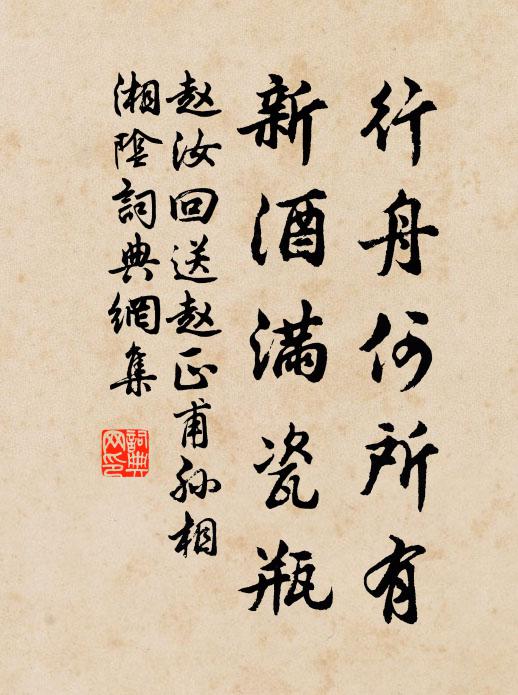 行舟何所有
新酒满瓷瓶
赵汝回送赵正甫孙相
湘陰詞典網集
詞典
网印